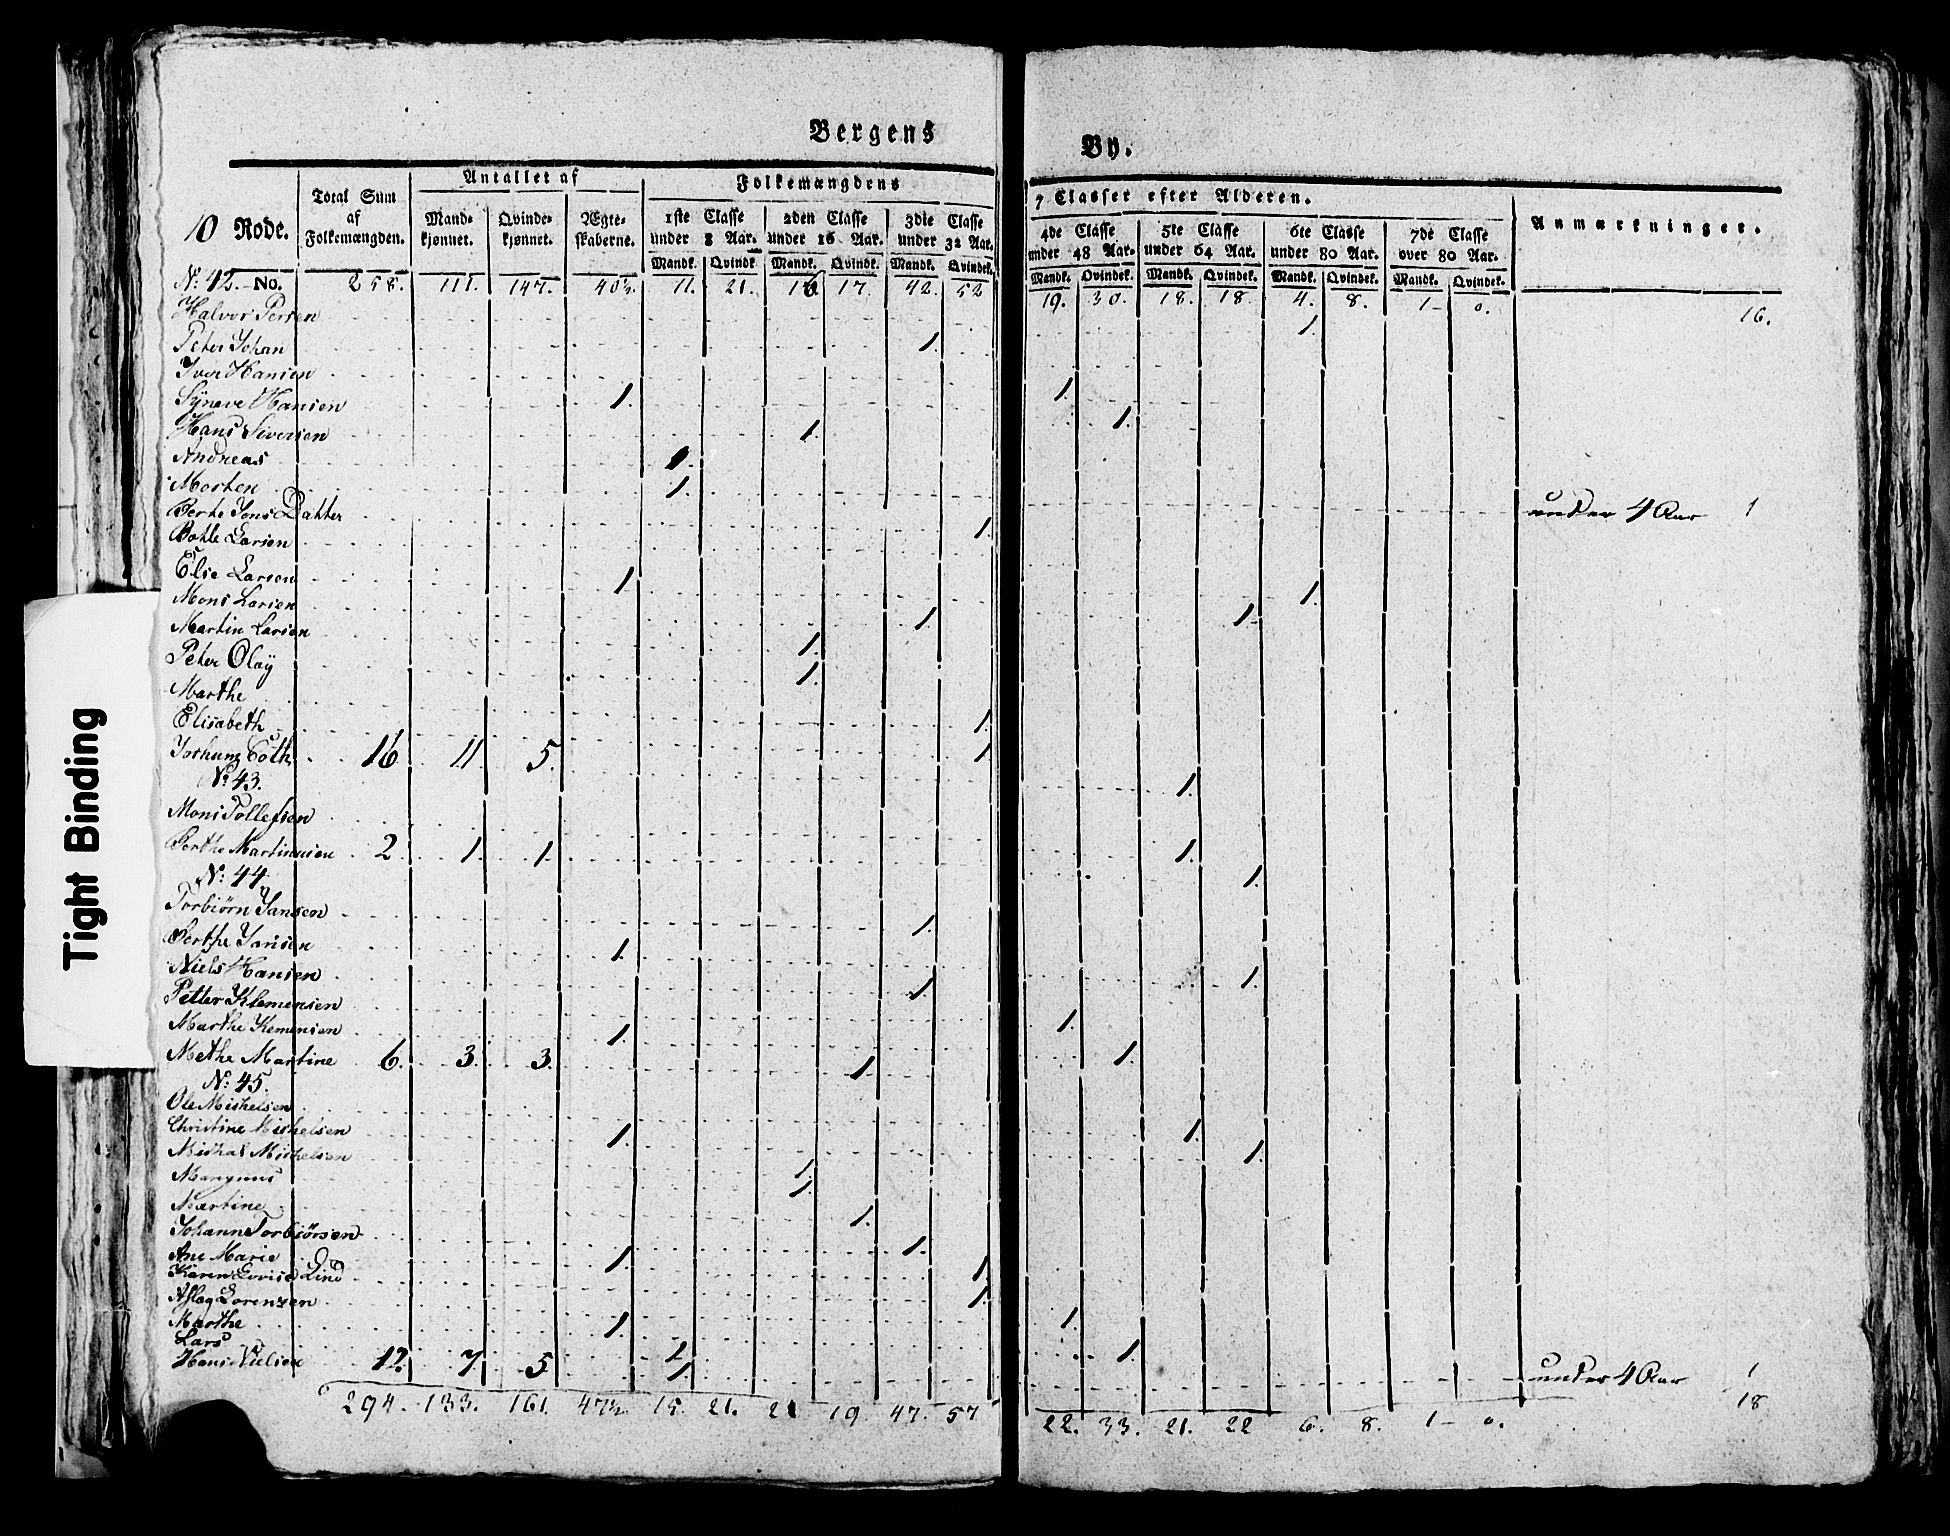 Bergens By.
10 Rode.
Total Sum af Folkemængden.
Antallet af
Mandkjønnet.
Qvindekjønnet.
Ægteskaberne.
Folkemængdens 7 Classer efter Alderen.
1ste Classe under 8 Aar.
2den Classe under 16 Aar.
3die Classe under 32 Aar.
4de Classe under 48 Aar.
5te Classe under 64 Aar.
6te Classe under 80 Aar.
7de Classe over 80 Aar.
Anmærkninger.
Mandk. Qvindek. Mandk. Qvindek. Mandk. Qvindek. Mandk. Qvindek. Mandk. Qvindek. Mandk. Qvindek. Mandk. Qvindek.
No: 42. No. 258. 111. 147. 11. 21. 16 17. 42. 52 19. 30. 18. 18. 4. 8. 1 0. 16.
Halvor Persen 1.
Peter Johan 1.
Iver Hansen 1.
Syneve Hansen 1. 1.
Hans Siversen 1.
Andreas 1.
Morten 1. under 4 Aar 1
Berte Jons Datter 1.
Bothe Larsen
Else Larsen 1
Mons Larsen 1.
Martin Larsen 1.
Peter Olaÿ 1.
Marthe
Elisabeth 1.
Jochum Coth 16 11 5. 1.
No: 43.
Mons Tollefsen 1.
Berthe Martinusen 2 1. 1.
No: 44.
Torbiörn Jansen 1.
Berthe Jansen 1.
Niels Hansen 1.
Petter Klemensen 1.
Marthe Kemensen 1. 1.
Methe Martine 6. 3. 3. 1.
No: 45.
Ole Mishelsen 1.
Christine Mishelsen 1. 1.
Michal Michelsen 1.
Mangnus 1.
Martine 1.
Johann Torbiörsen 1.
Ane Marie 1. 1.
Karen Lovise Lind 1.
Aslag Lorenzen 1.
Marthe 1. 1.
Lars 1.
Hans Nielsen 12. 7. 5 1. under 4 Aar 1
294. 133. 161. 15. 21. 21 19. 47. 57 22. 33. 21. 22 6. 8. 1 0. 18
Tight Binding